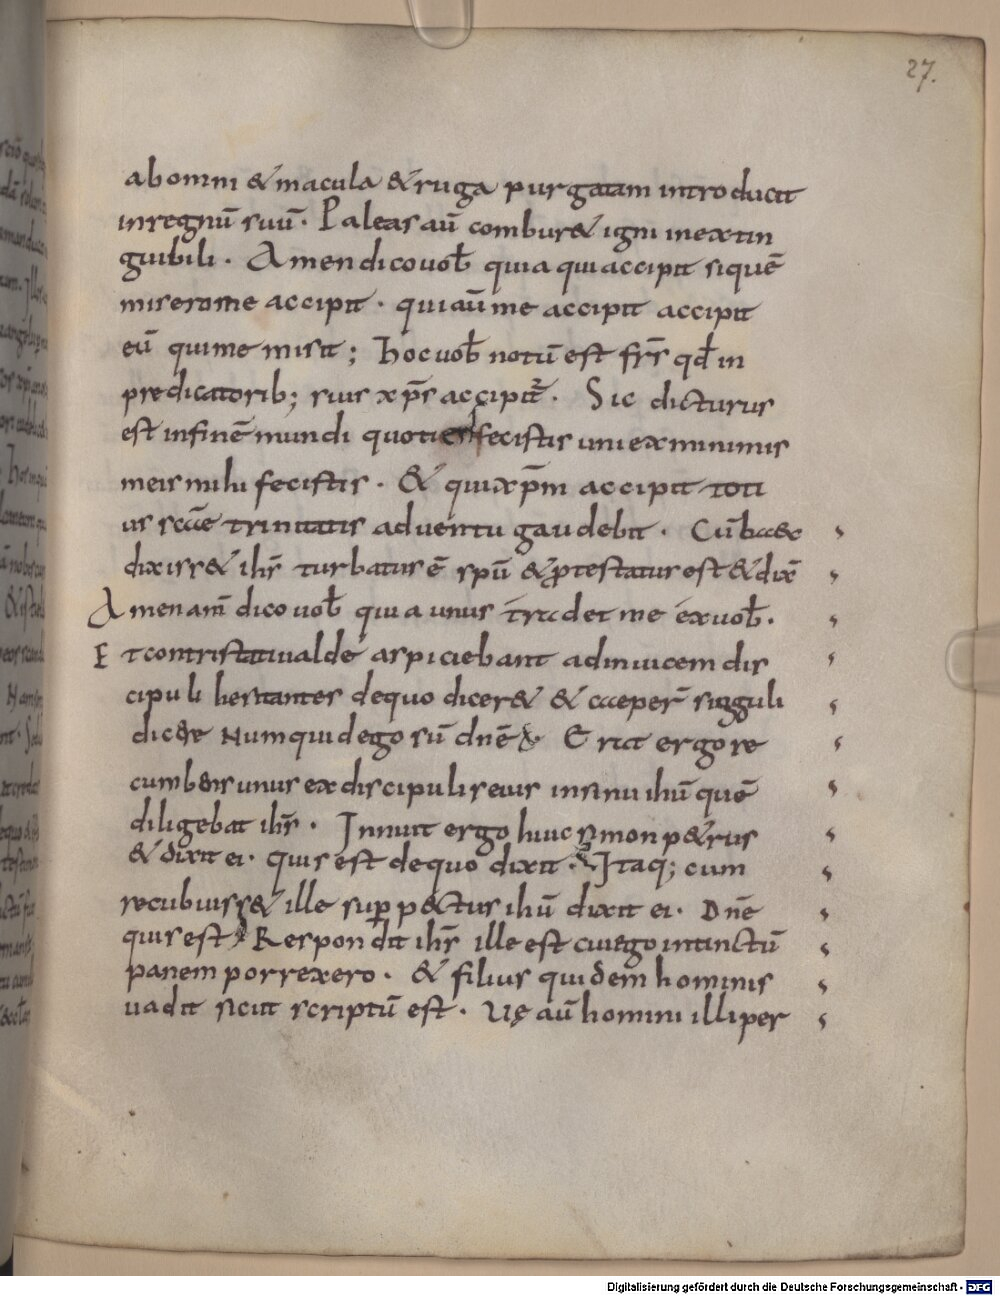 27.
ab omni & macula & ruga purgatam introducit
in regnū suū. Paleas aū combur& igni inextin
guibili. Amen dico uob̄ quia qui accipit si quē
misero me accipit. qui aū me accipit accipit
eū qui me misit; Hoc uob̄ notū est frs̄ qd̄ in
predicatorib; suis xp̄s accipit᷑. Sic dicturus
est in finē mundi quotiens fecistis uni ex minimis
meis mihi fecistis. & qui xp̄m accipit toti
us sc̄ae trinitatis aduentu gaudebit. Cū haec
dixiss& ih̄s turbatus ē sp̄u & ꝓtestatus est & dix̄
Amen am̄ dico uob̄ quia unus tradet me ex uob̄.
Et contristati ualde aspiciebant ad inuicem dis
cipuli hesitantes de quo dicer& & ceeper̄ singuli
dic&re Numquid ego sū dn̄e Erat ergo re
cumb&ns unus ex discipulis eius in sinu ih̄u quē
diligebat ih̄s. Innuit ergo huic simon p&rus
& dixit ei. quis est de quo dixit. Itaq; cum
recubuiss& ille suꝑ pectus ih̄u dixit ei. Dn̄e
quis est Respondit ih̄s ille est cui ego intinctū
panem porrexero. & filius quidem hominis
uadit sicut scriptū est. Uę aū homini illi per
Digitalisierung gefördert durch die Deutsche Forschungsgemeinschaft - DFG